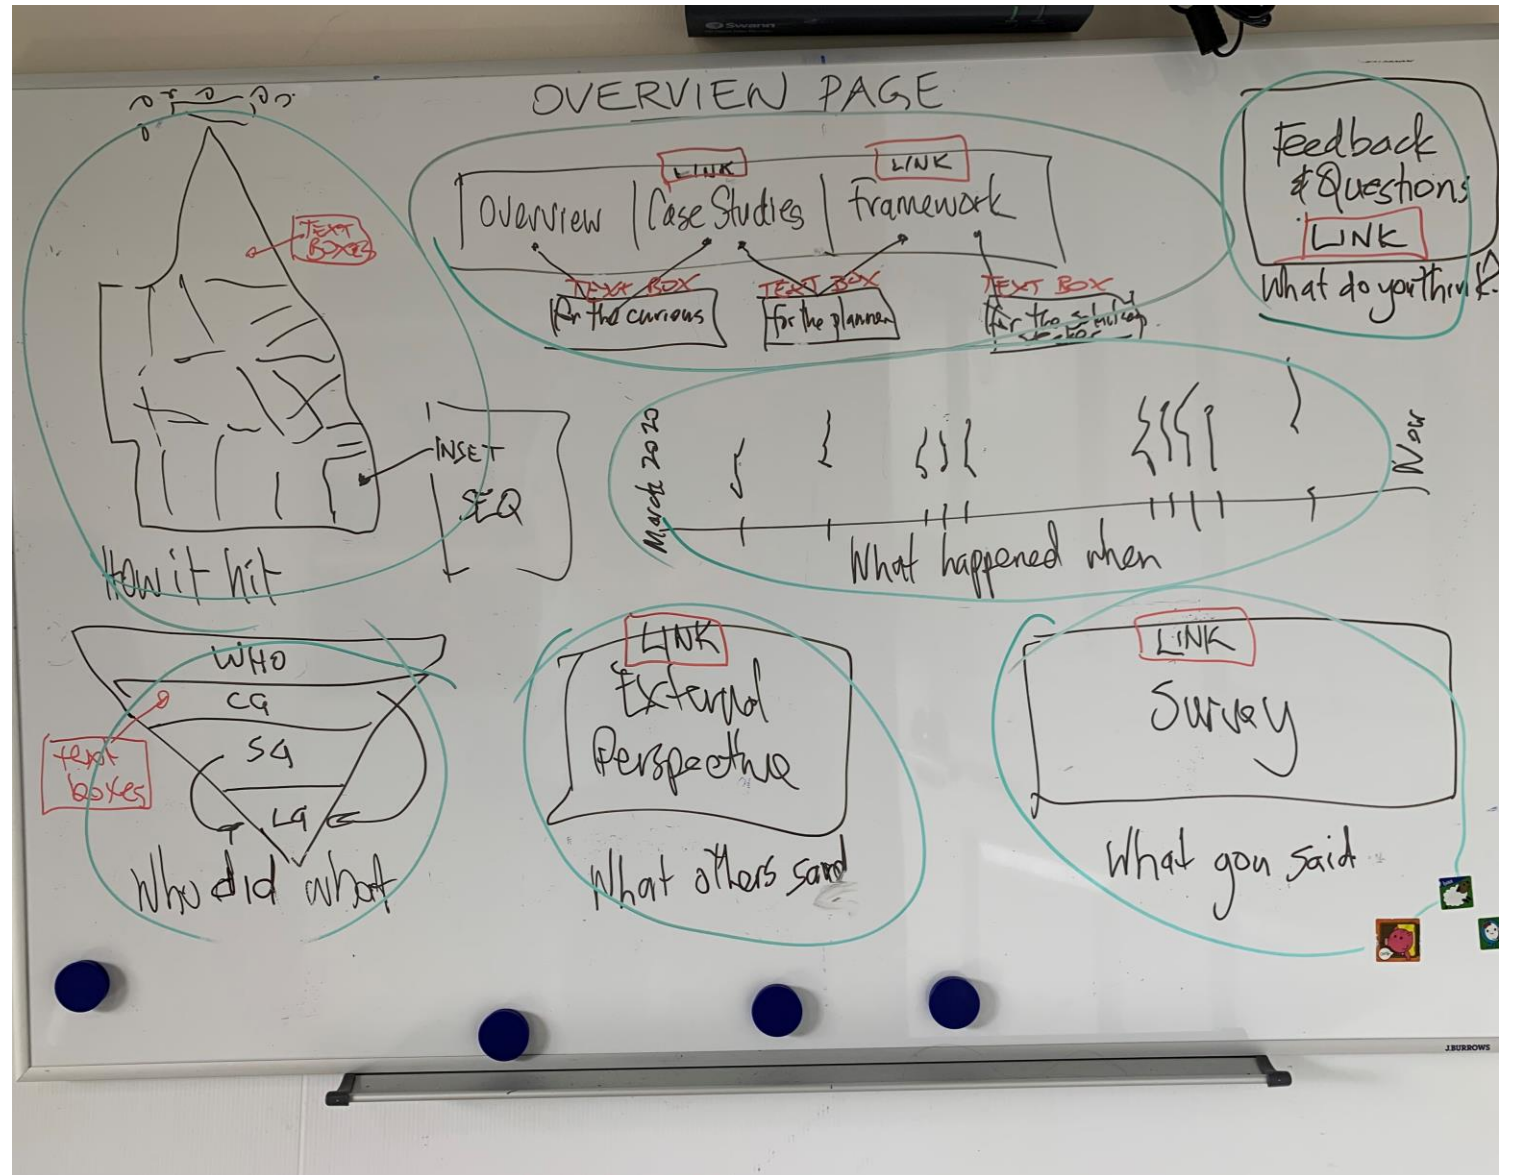 Swann
OVERVIEW PAGE
LINK
LINK
Overview
Case Studies
Framework
TEXT BOX
for the curious
TEXT BOX
for the planner
TEXT BOX
for the
Feedback
& Questions
LINK
What do you think?
TEXT
BOXES
INSET
SEQ
How it hit
March 2020
Now
What happened when
WHO
CG
SG
LG
text
boxes
Who did what
LINK
External
Perspective
What others said
LINK
Survey
What you said
J.BURROWS